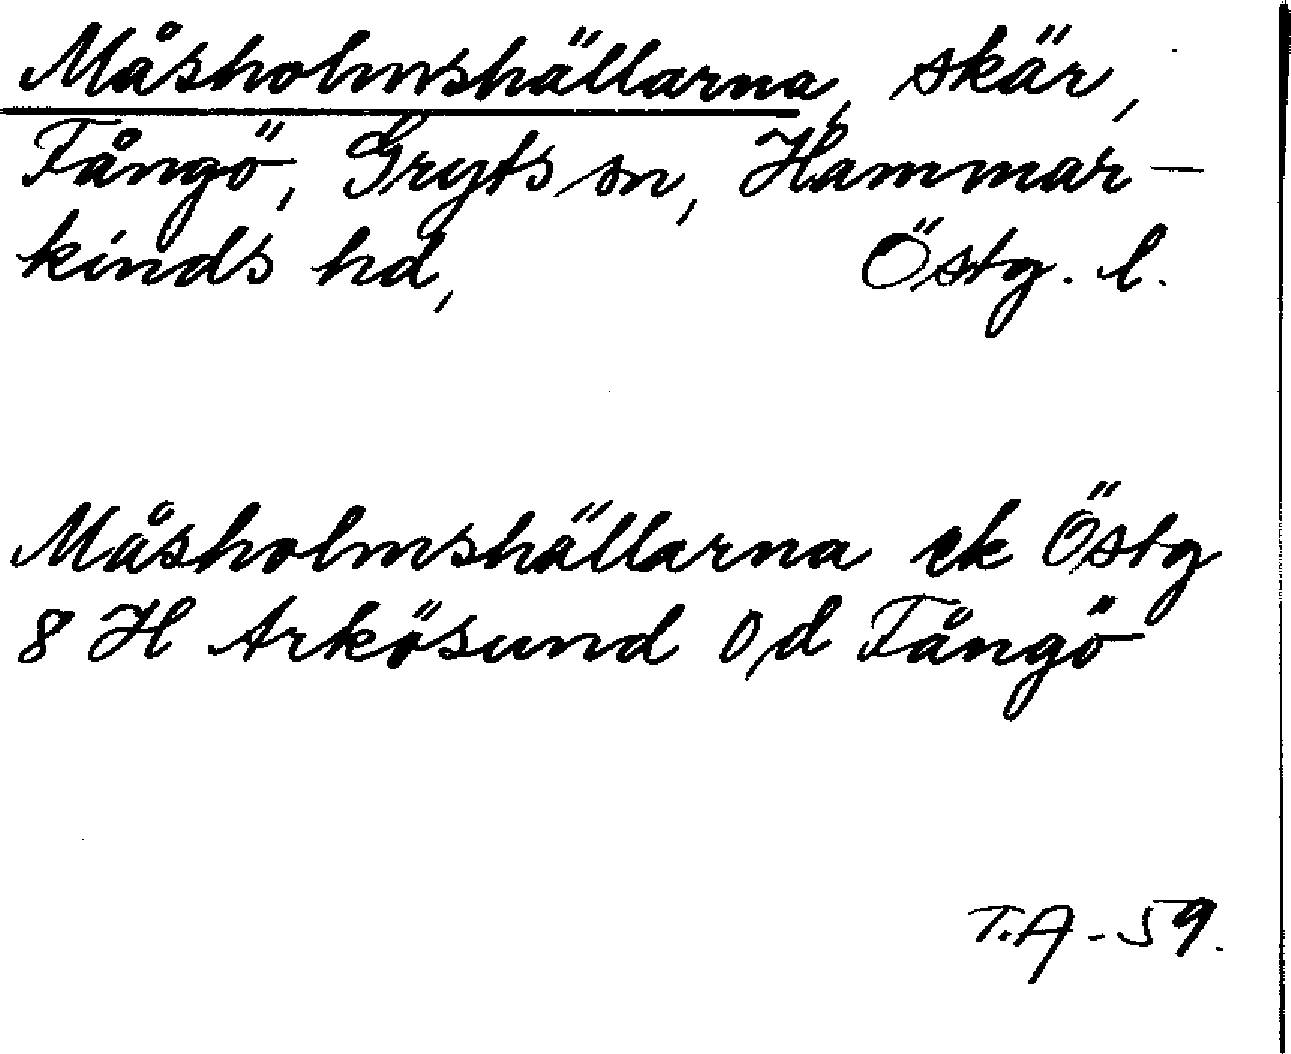 Måsholmshällarna, skär,
Fångö, Gryts sn, Hammar-
kinds hd, Östg. l.
Måsholmshällarna ek Östg
8 H Arkösund 0,d Fångö
T.A-59.